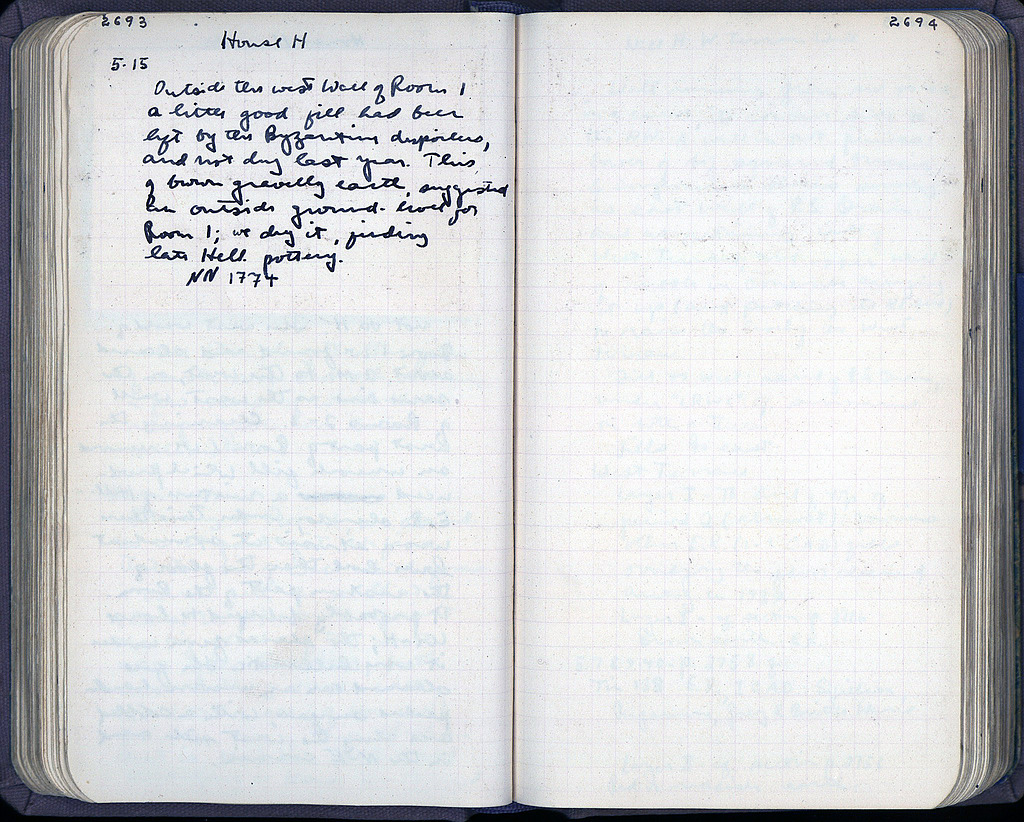 2693
House H
5·15
Outside the west wall of Room 1
a little good fill had been
left by the Byzantine despoilers,
and not dug last year. This
of brown gravelly earth, suggested
an outside ground-level for
Room 1; we dug it, finding
late Hell. pottery.
NN 1774
2694